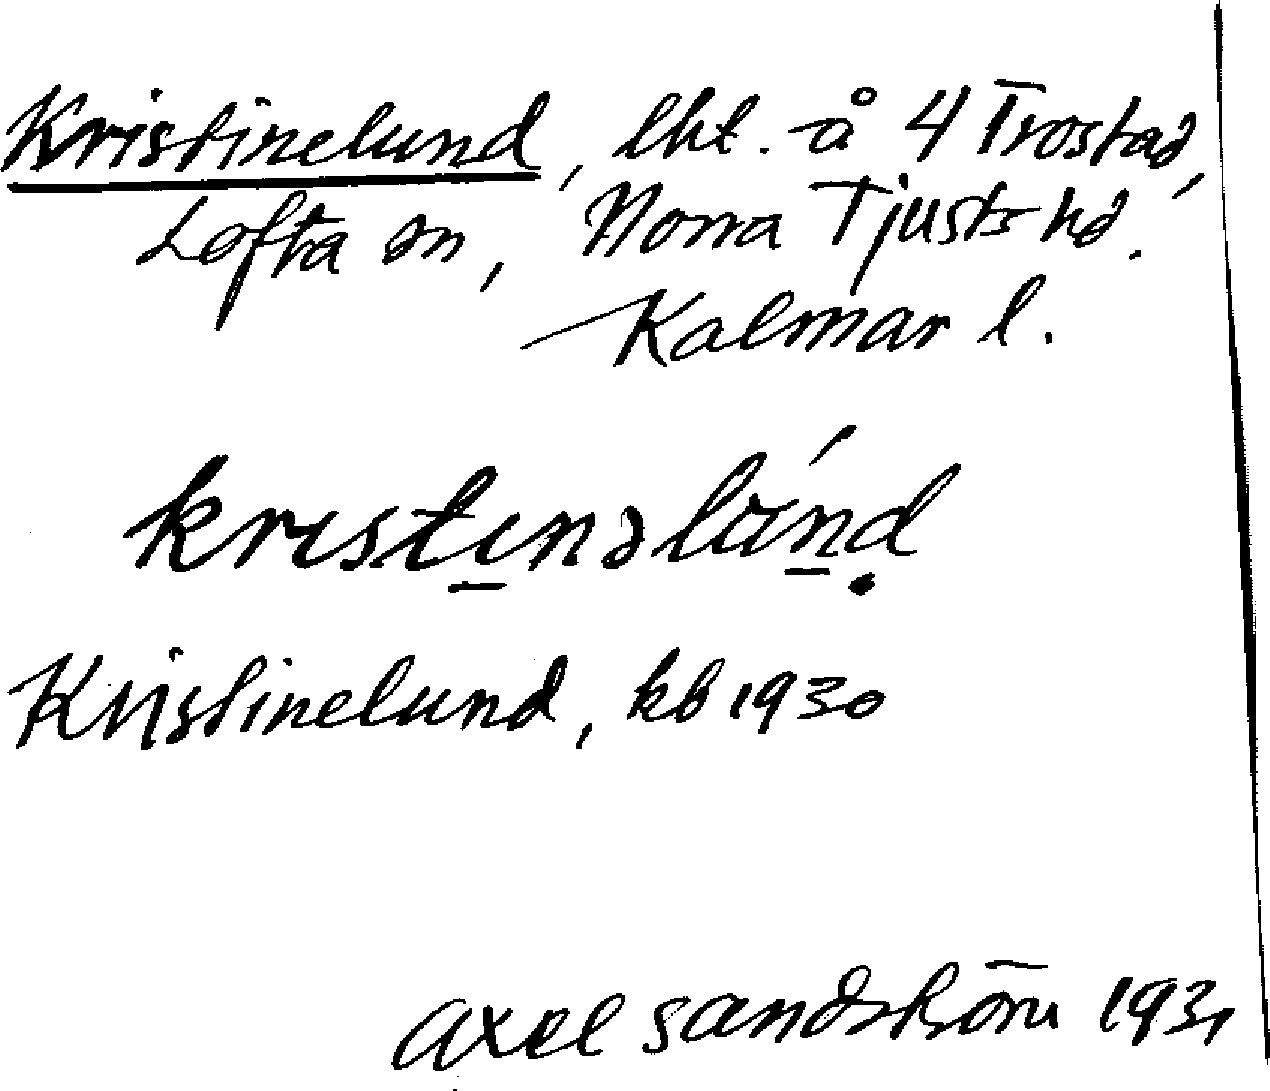 Kristinelund, lht. å 4 Trostad,
Lofta sn, Norra Tjusts hd.
Kalmar l.
krıstınəlúnd
Kristinelund, kb 1930
Axel Sandström 1931